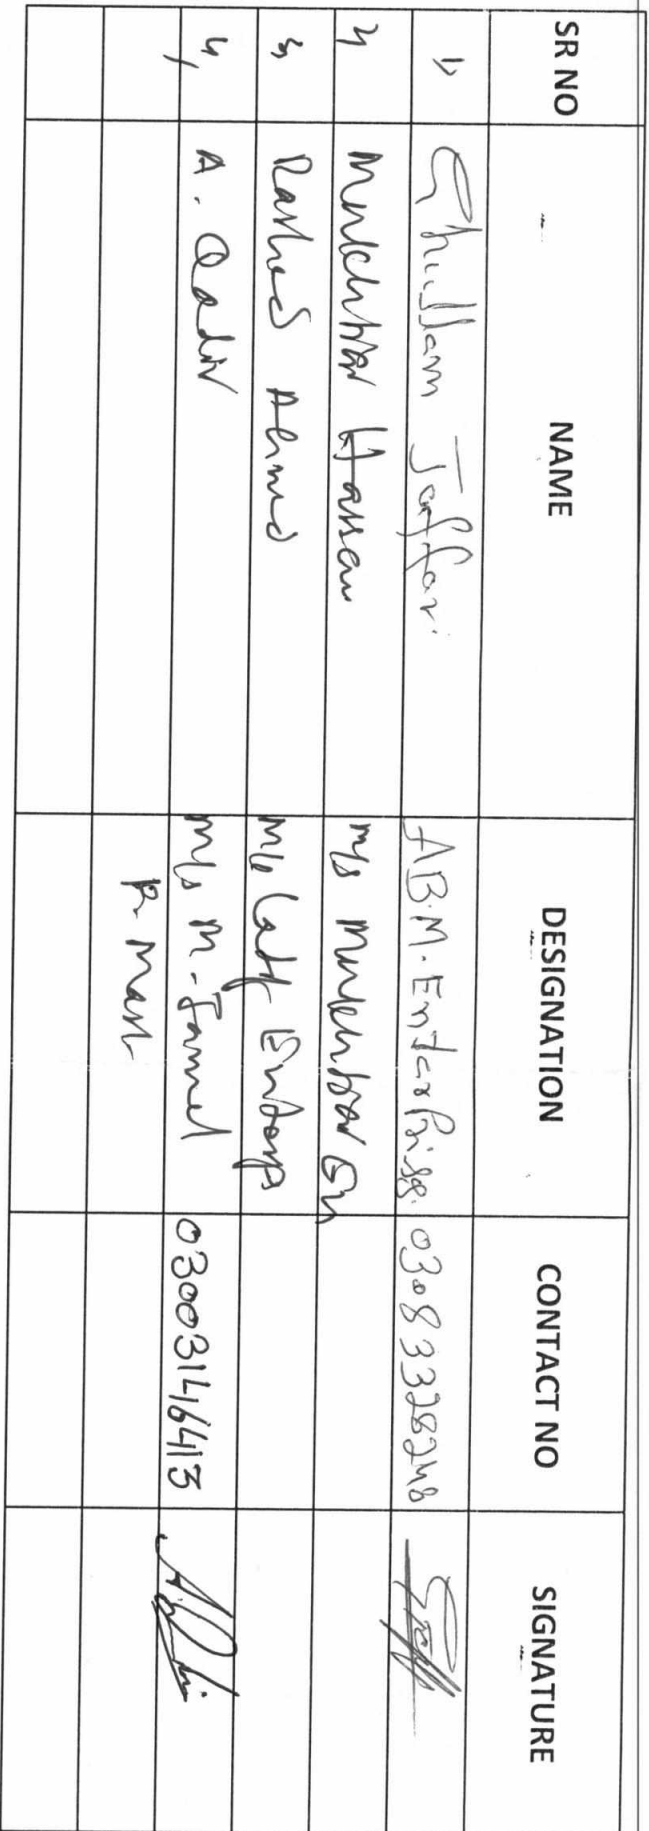 SR NO NAME DESIGNATION CONTACT NO SIGNATURE
1) Ghullam Jaffar. A.B.M. Enterprise. 03083328248
2) Mukhtiar Hassan M/s Mukhtiar
3) Rasheed Ahmed M/s
4) A. Qadir M/s M. Jameel 03003146413